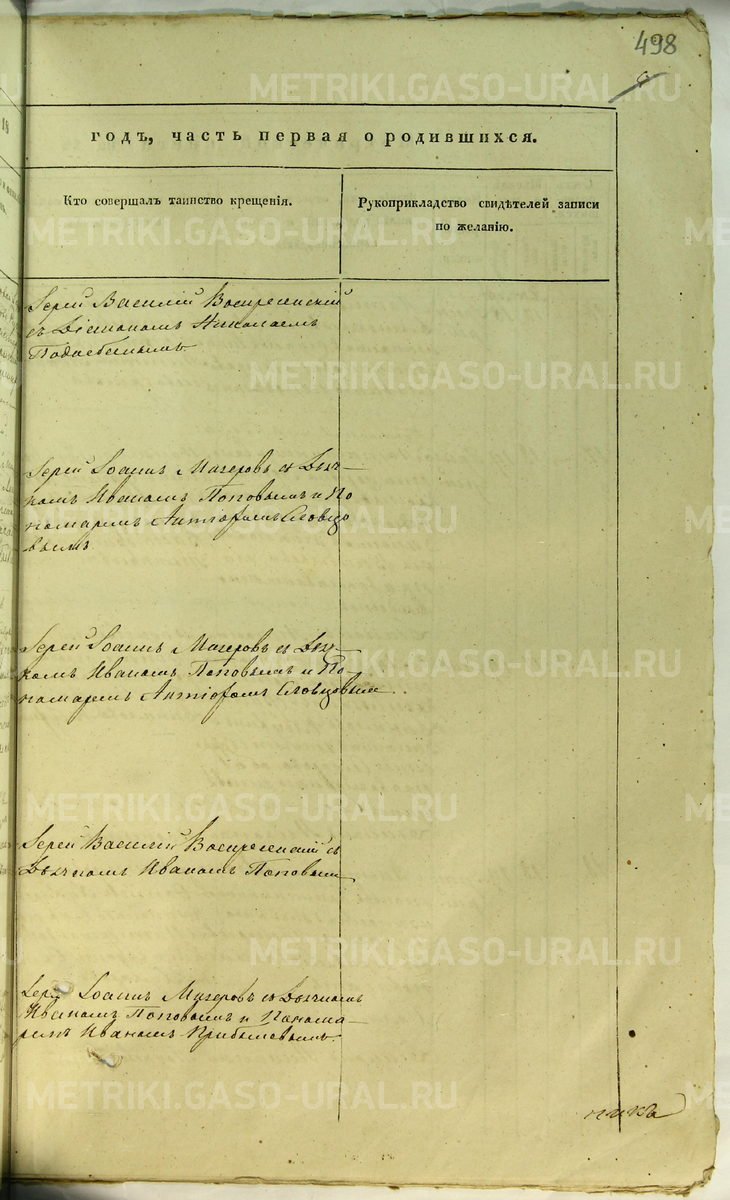 498
METRIKI.GASO-URAL.RU
годъ, часть первая о родившихся.
Кто совершалъ таинство крещенія.
Рукоприкладство свидѣтелей записи
по желанію.
Іерей Василій Воскресенскій
съ Діакономъ Николаемъ
Іерей Іоаннъ Магеровъ съ Дьяч-
комъ Иваномъ Поповымъ и По
номаремъ Антіофомъ Словцо
вымъ
Іерей Іоаннъ Магеровъ съ Дья-
комъ Иваномъ Поповымъ и По-
номаремъ Антіофомъ Словцовым
Іерей Василій Воскресенскій съ
Дьячкомъ Иваномъ Поповым
Іерей Іоаннъ Магеровъ съ Дьячкомъ
Иваномъ Поповымъ и Понома-
ремъ Иваномъ Прибылевымъ.